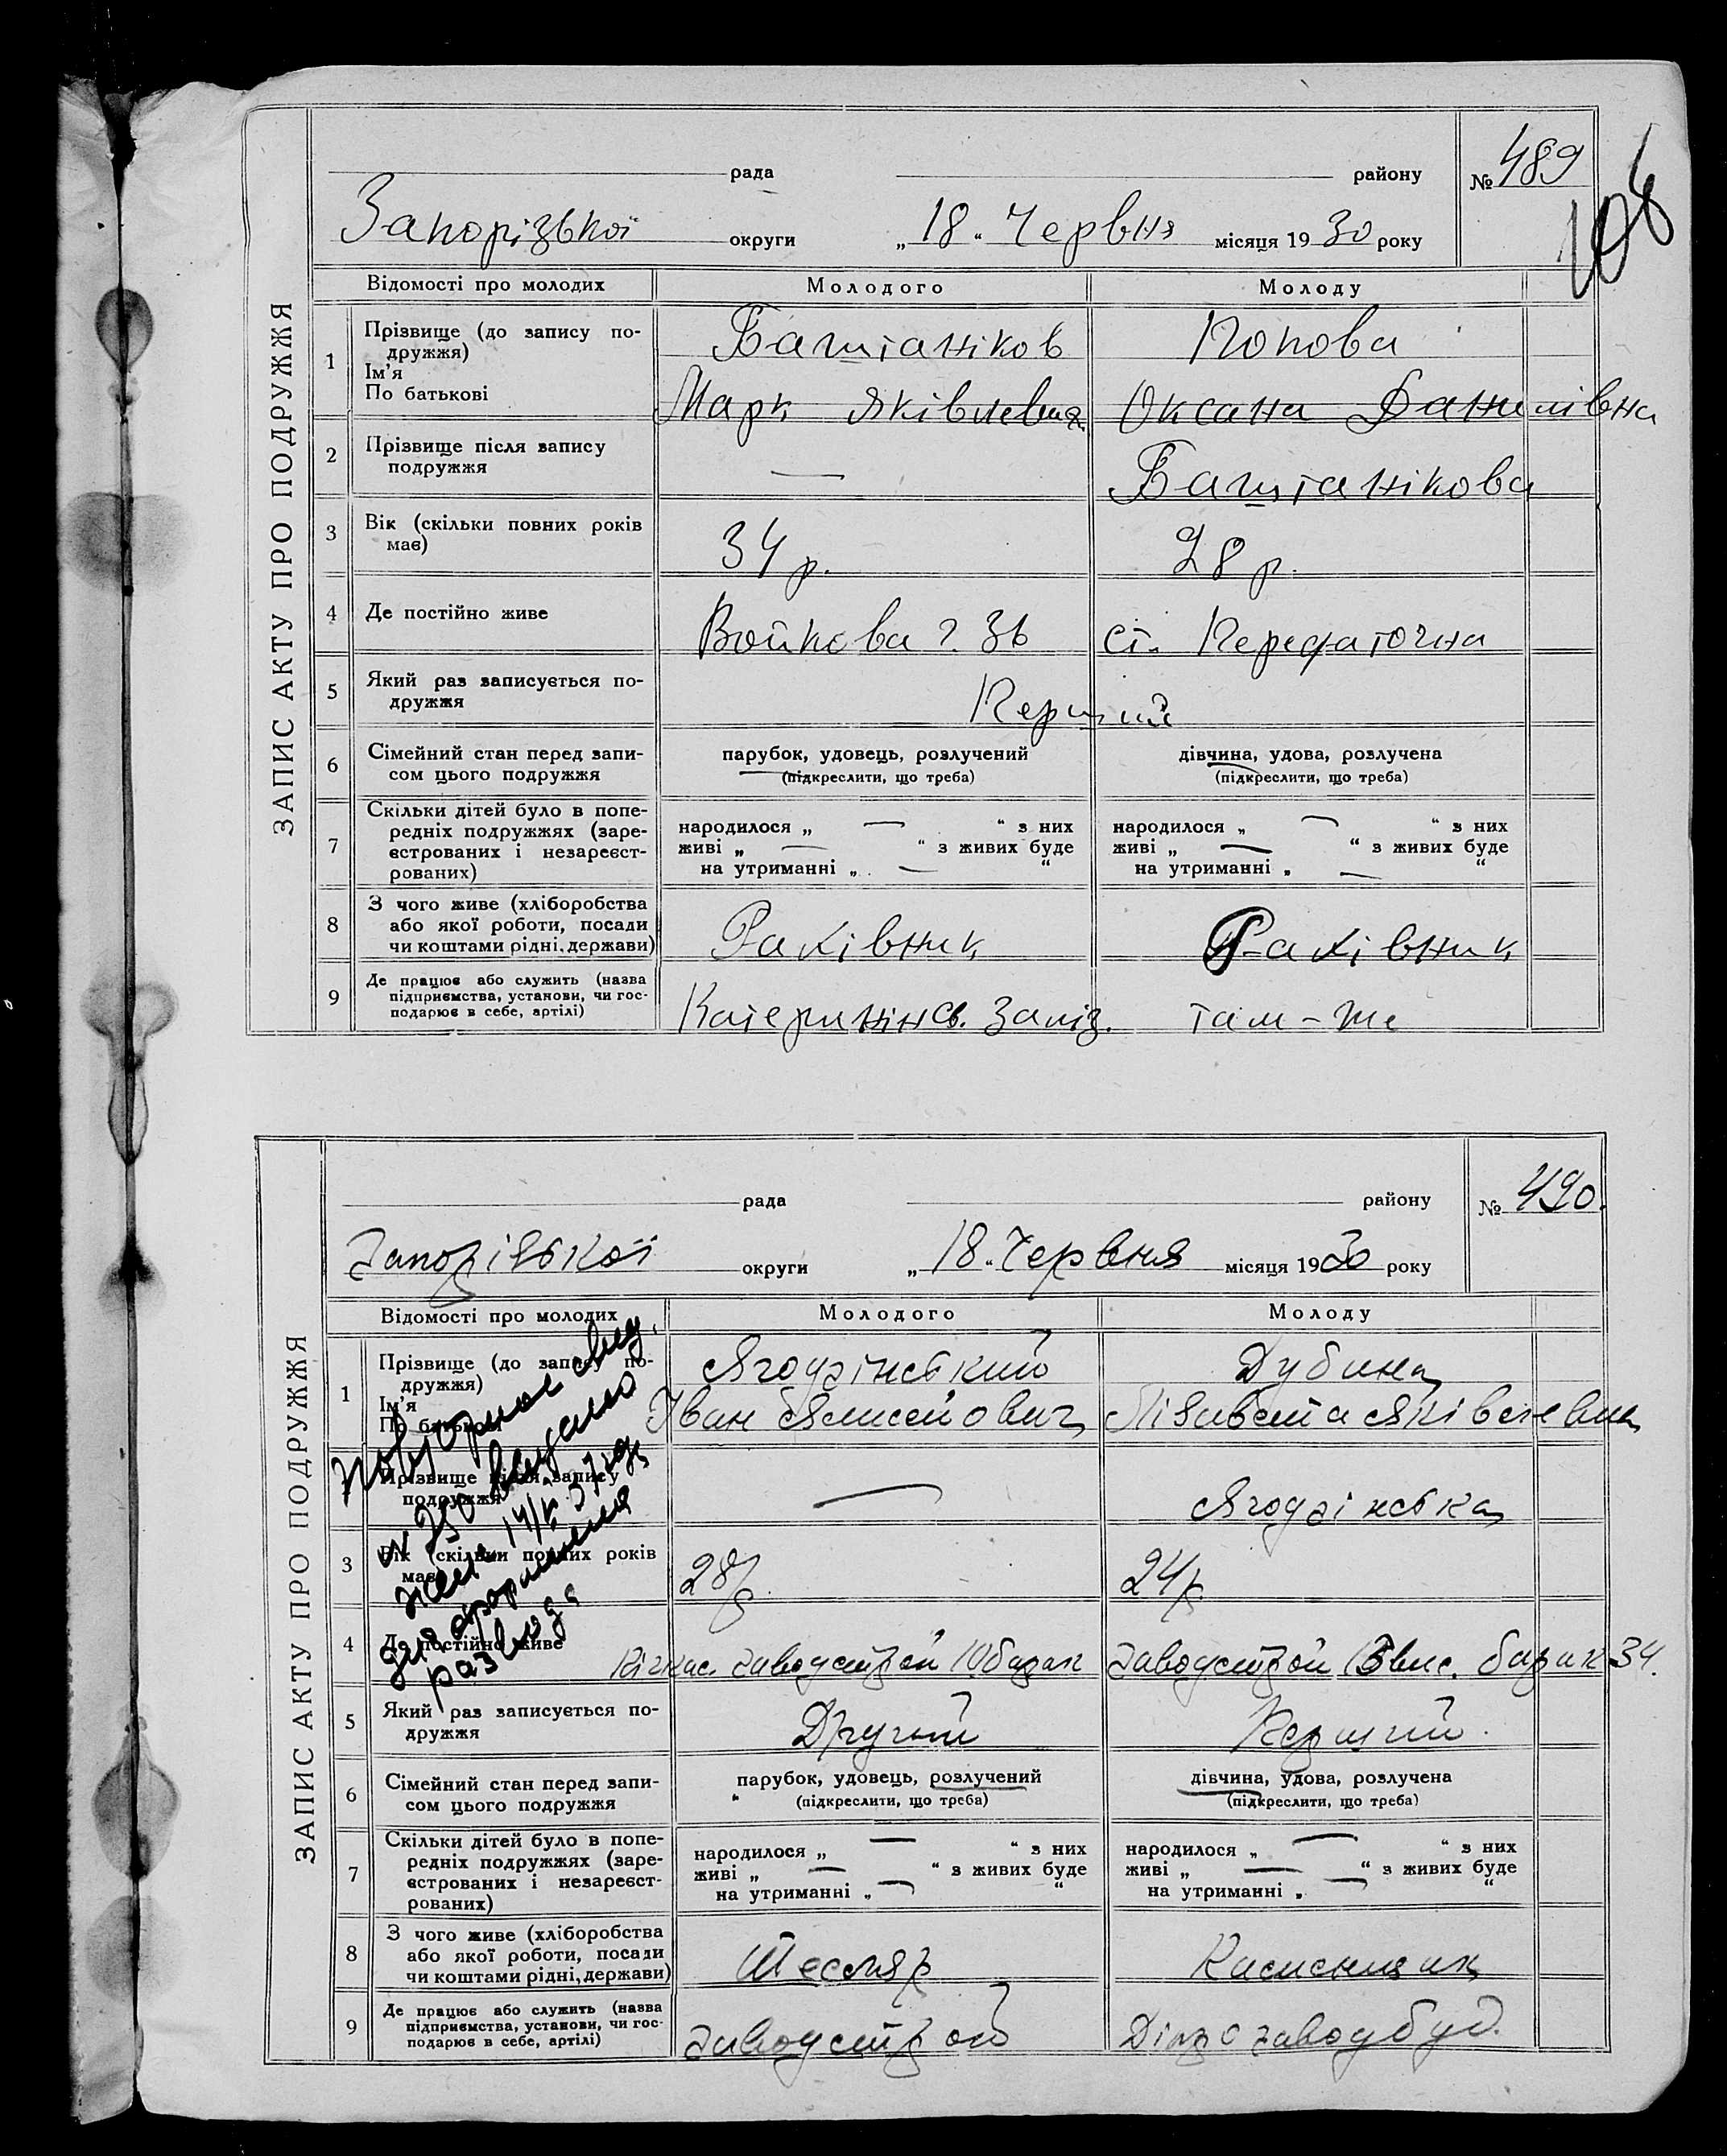 ЗАПИС АКТУ ПРО ПОДРУЖЖЯ
рада району № 489
106
Запорізької округи „18“ Червня місяця 1930 року
Відомості про молодих Молодого Молоду
1 Прізвище (до запису по-
дружжя)
Ім'я
По батькові
Баштаніков Попова
Марк Яківлевич Оксана Данилівна
2 Прізвище після запису
подружжя
— Баштанікова
3 Вік (скільки повних років
має)
34 р. 28 р.
4 Де постійно живе Войкова 2. 36 ст. Передаточна
5 Який раз записується по-
дружжя
Перший
6 Сімейний стан перед запи-
сом цього подружжя
парубок, удовець, розлучений дівчина, удова, розлучена
(підкреслити, що треба) (підкреслити, що треба)
7 Скільки дітей було в попе-
редніх подружжях (заре-
єстрованих і незареєст-
рованих)
народилося „ — “ з них народилося „ — “ з них
живі „ — “ з живих буде живі „ — “ з живих буде
на утриманні „ — “ на утриманні „ — “
8 З чого живе (хліборобства
або якої роботи, посади
чи коштами рідні, держави)
Рахівник Рахівник
9 Де працює або служить (назва
підприємства, установи, чи гос-
подарює в себе, артілі)
Катеринінсв. Заліз. там-же
ЗАПИС АКТУ ПРО ПОДРУЖЖЯ
рада району № 490.
Запорізької округи „18“ Червня місяця 1930 року
Відомості про молодих Молодого Молоду
1 Прізвище (до запису по-
дружжя)
Ім'я
По батькові
Ягодзінський Дубина
Іван Лізавета Яківлевна
2 Прізвище після запису
подружжя
— Ягодзінська
3 Вік (скільки повних років
має)
28 р. 24 р.
повторное свид.
н 250 выдано
жене 14/X 37 года
для оформления
развода
4 Де постійно живе Кічкас. Заводстрой 10 барак Заводстрой 13 вис. барак 34.
5 Який раз записується по-
дружжя
Другий Перший
6 Сімейний стан перед запи-
сом цього подружжя
парубок, удовець, розлучений дівчина, удова, розлучена
(підкреслити, що треба) (підкреслити, що треба)
7 Скільки дітей було в попе-
редніх подружжях (заре-
єстрованих і незареєст-
рованих)
народилося „ — “ з них народилося „ — “ з них
живі „ — “ з живих буде живі „ — “ з живих буде
на утриманні „ — “ на утриманні „ — “
8 З чого живе (хліборобства
або якої роботи, посади
чи коштами рідні, держави)
Тесляр
9 Де працює або служить (назва
підприємства, установи, чи гос-
подарює в себе, артілі)
Заводстрой Діпрозаводбуд.